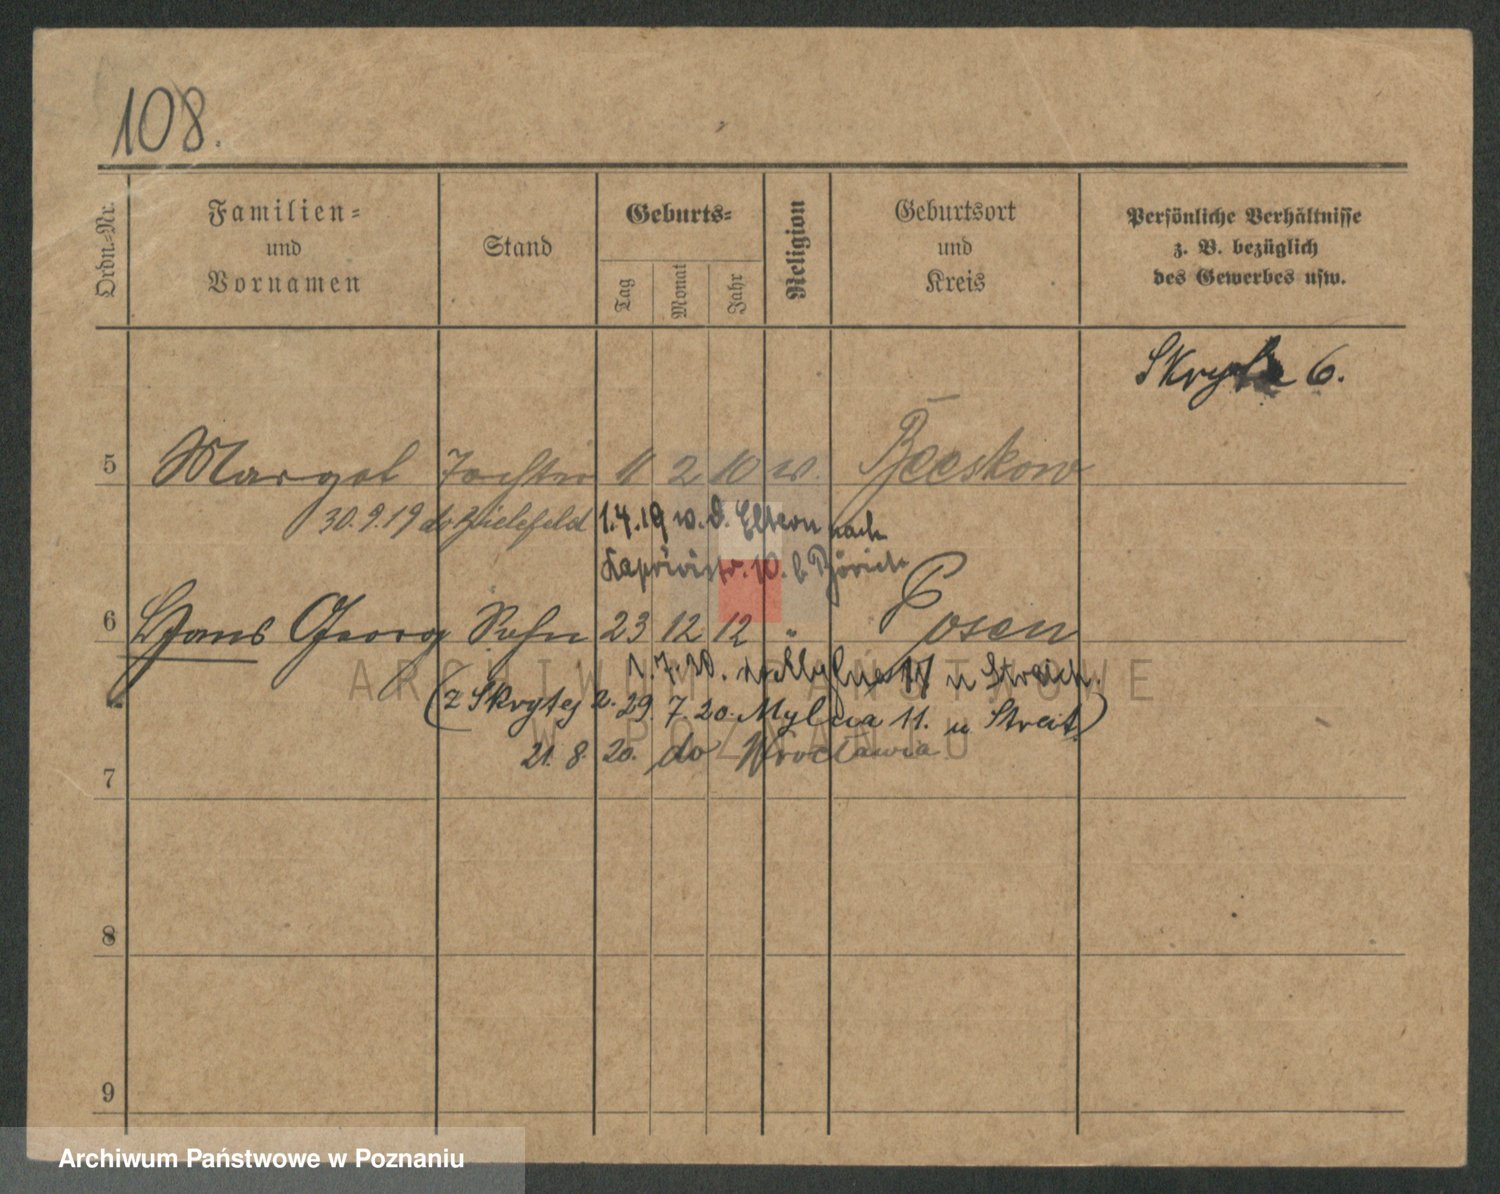 108.
Ordn=Nr.
Familien=
und
Vornamen
Stand
Geburts=
Tag
Monat
Jahr
Religion
Geburtsort
und
Kreis
Persönliche Verhältnisse
z. B. bezüglich
des Gewerbes usw.
6.
5 Margot Tochter 11 2 10 w. Beeskow
30.9.19 do Bielefeld 1.4.19 w. d. Eltern nach
10. b.
6 Hans Georg Sohn 23 12 12 " Posen
7.20. 11 u
(z Skrytej 29. 7. 20. Mylna 11. u Streit)
21. 8. 20. do Wrocławia
7
8
9
ARCHIWUM PAŃSTWOWE
W POZNANIU
Archiwum Państwowe w Poznaniu